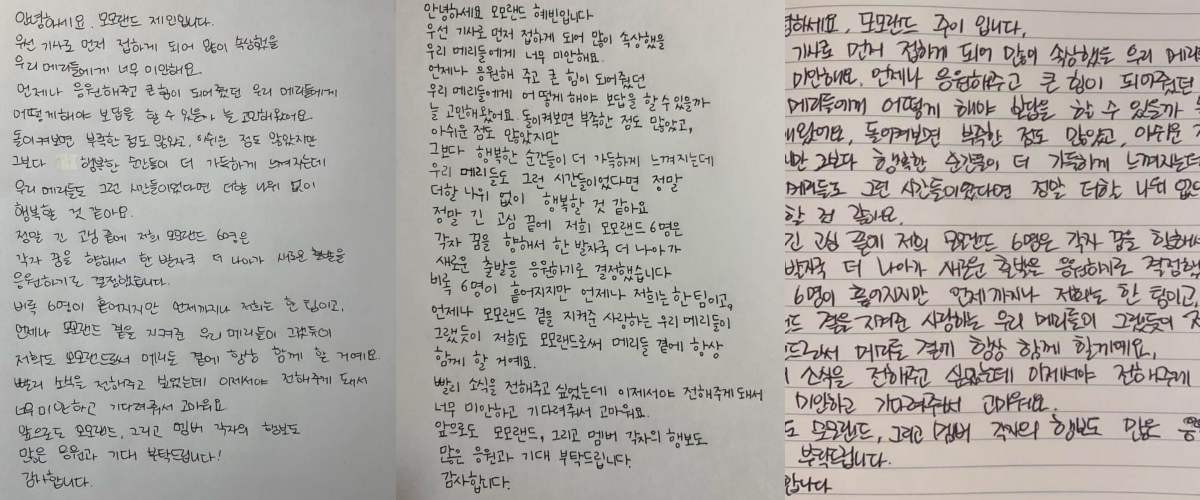 안녕하세요. 모모랜드 제인입니다.
우선 기사로 먼저 접하게 되어 많이 속상했을
우리 메리들에게 너무 미안해요.
언제나 응원해주고 큰 힘이 되어줬던 우리 메리들에게
어떻게 해야 보답을 할 수 있을까 늘 고민해왔어요.
돌이켜보면 부족한 점도 많았고, 아쉬운 점도 많았지만
그보다 행복한 순간들이 더 가득하게 느껴지는데
우리 메리들도 그런 시간들이었다면 더할 나위 없이
행복할 것 같아요.
정말 긴 고심 끝에 저희 모모랜드 6명은
각자 꿈을 향해서 한 발자국 더 나아가 새로운 출발을
응원하기로 결정했습니다.
비록 6명이 흩어지지만 언제까지나 저희는 한 팀이고,
언제나 모모랜드 곁을 지켜준 우리 메리들이 그랬듯이
저희도 모모랜드로써 메리들 곁에 항상 함께 할 거예요.
빨리 소식을 전해주고 싶었는데 이제서야 전해주게 돼서
너무 미안하고 기다려줘서 고마워요.
앞으로도 모모랜드, 그리고 멤버 각자의 행보도
많은 응원과 기대 부탁드립니다!
감사합니다.
안녕하세요 모모랜드 혜빈입니다
우선 기사로 먼저 접하게 되어 많이 속상했을
우리 메리들에게 너무 미안해요.
언제나 응원해 주고 큰 힘이 되어줬던
우리 메리들에게 어떻게 해야 보답을 할 수 있을까
늘 고민해왔어요. 돌이켜보면 부족한 점도 많았고,
아쉬운 점도 많았지만
그보다 행복한 순간들이 더 가득하게 느껴지는데
우리 메리들도 그런 시간들이었다면 정말
더할 나위 없이 행복할 것 같아요
정말 긴 고심 끝에 저희 모모랜드 6명은
각자 꿈을 향해서 한 발자국 더 나아가
새로운 출발을 응원하기로 결정했습니다
비록 6명이 흩어지지만 언제나 저희는 한 팀이고,
언제나 모모랜드 곁을 지켜준 사랑하는 우리 메리들이
그랬듯이 저희도 모모랜드로써 메리들 곁에 항상
함께 할 거예요.
빨리 소식을 전해주고 싶었는데 이제서야 전해주게 돼서
너무 미안하고 기다려줘서 고마워요.
앞으로도 모모랜드, 그리고 멤버 각자의 행보도
많은 응원과 기대 부탁드립니다.
감사합니다.
하세요, 모모랜드 주이 입니다.
기사로 먼저 접하게 되어 많이 속상했을 우리 메리
미안해요. 언제나 응원해주고 큰 힘이 되어줬던
메리들에게 어떻게 해야 보답을 할 수 있을까
해왔어요, 돌이켜보면 부족한 점도 많았고, 아쉬운
지만 그보다 행복한 순간들이 더 가득하게 느껴지는데
메리들도 그런 시간들이었다면 정말 더할 나위 없
할 것 같아요.
긴 고심 끝에 저희 모모랜드 6명은 각자 꿈을 향해서
발자국 더 나아가 새로운 출발을 응원하기로 결정했
6명이 흩어지지만 언제까지나 저희는 한 팀이고,
드 곁을 지켜준 사랑하는 우리 메리들이 그랬듯이 저
드로써 메리들 곁에 항상 함께 할게예요.
소식을 전해주고 싶었는데 이제서야 전해주게
미안하고 기다려줘서 고마워요.
도 모모랜드, 그리고 멤버 각자의 행보도 많은 응
부탁드립니다.
합니다